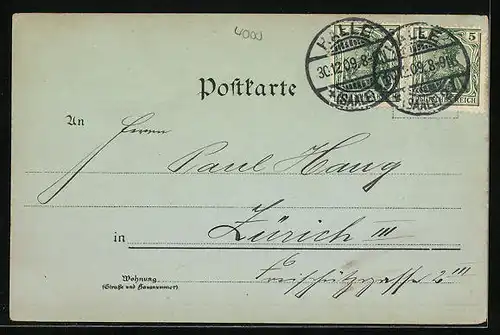 4000
HALLE
30.12.09.8-9
(SAALE)
HALLE
.12.09.8-9
(SAALE)
5
REICH
Postkarte
An
Herrn
Paul Haug
in Zürich III
Freischützgasse
III
Wohnung
(Straße und Hausnummer)